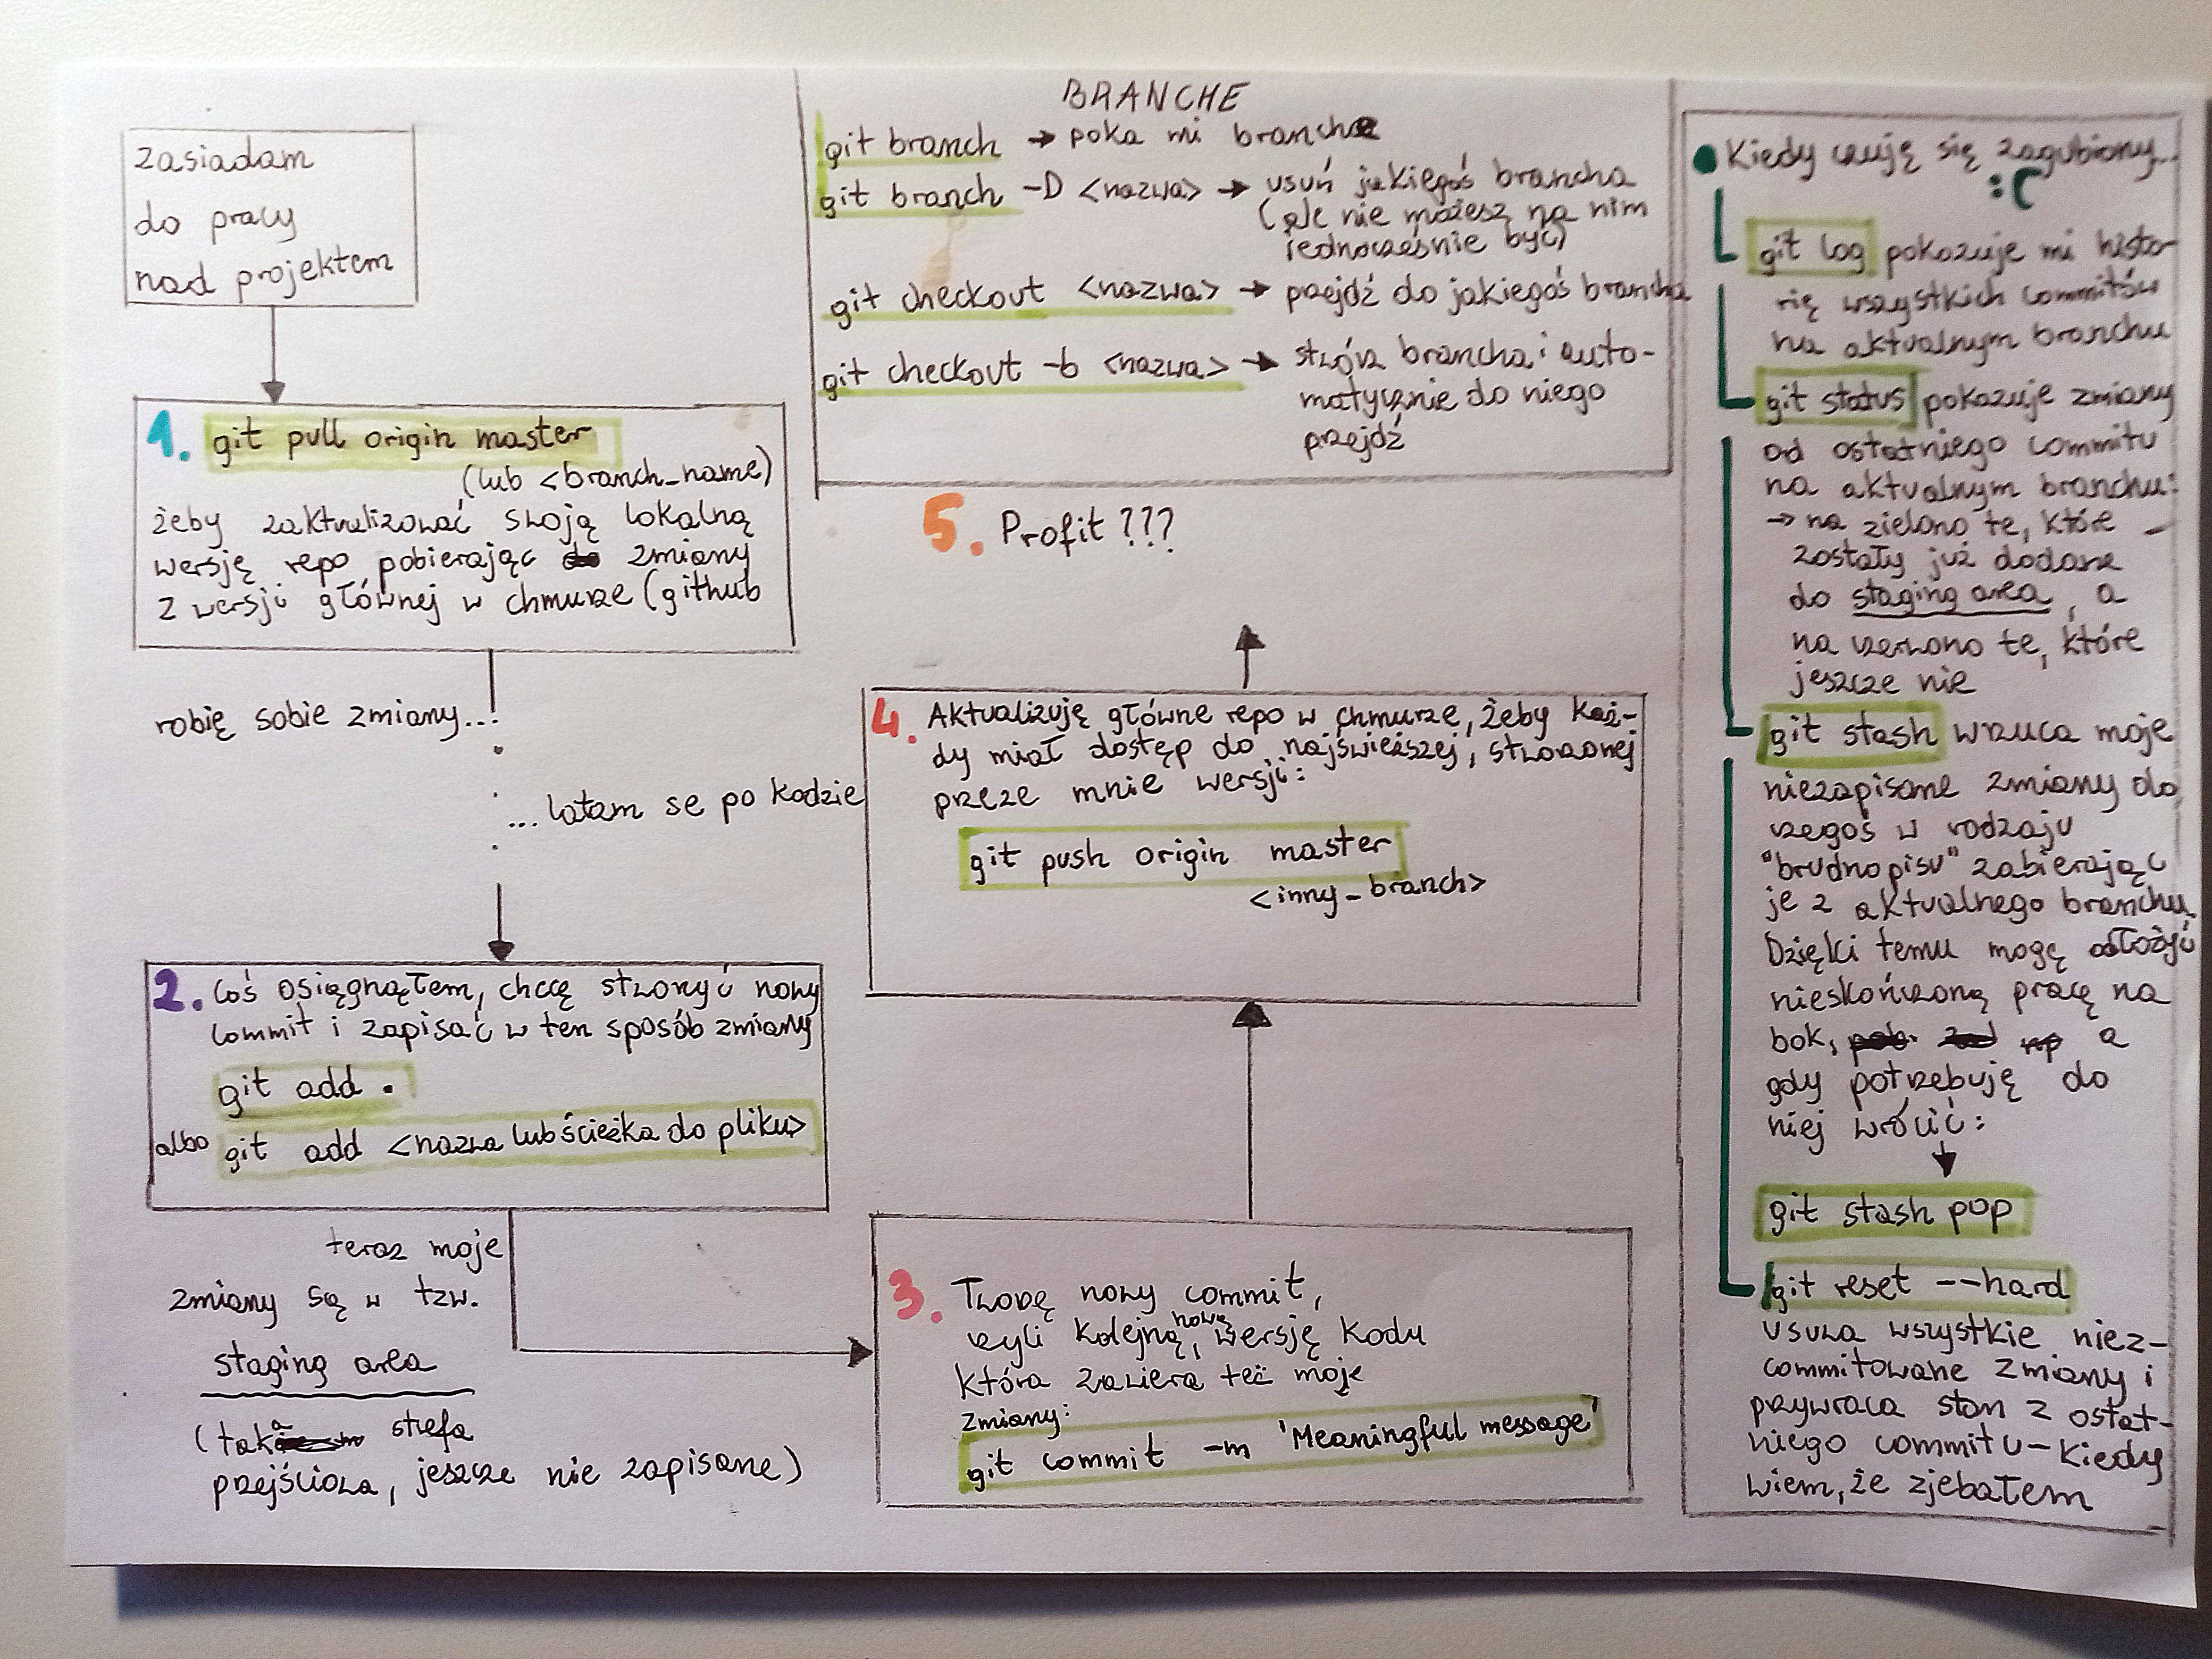 zasiadam
do pracy
nad projektem
1. git pull origin master
(lub <branch_name)
żeby zaktualizować swoją lokalną
wersję repo pobierając zmiany
z wersji głównej w chmurze (github
robię sobie zmiany...
... latam se po kodzie
2. Coś osiągnąłem, chcę stworzyć nowy
commit i zapisać w ten sposób zmiany
git add .
albo git add <nazwa lub ścieżka do pliku>
teraz moje
zmiany są w tzw.
staging area
(taka strefa
przejściowa, jeszcze nie zapisane)
3. Tworzę nowy commit,
czyli kolejną, nową wersję kodu
która zawiera też moje
zmiany:
git commit -m 'Meaningful message'
4. Aktualizuję główne repo w chmurze, żeby każ-
dy miał dostęp do najświeższej, stworzonej
przeze mnie wersji:
git push origin master
<inny_branch>
5. Profit???
BRANCHE
git branch → poka mi branche
git branch -D <nazwa> → usuń jakiegoś brancha
(ale nie możesz na nim
jednocześnie być)
git checkout <nazwa> → przejdź do jakiegoś brancha
git checkout -b <nazwa> → stwórz brancha i auto-
matycznie do niego
przejdź
• Kiedy czuję się zagubiony...
:(
git log pokazuje mi histo-
rię wszystkich commitów
na aktualnym branchu
git status pokazuje zmiany
od ostatniego commitu
na aktualnym branchu:
→ na zielono te, które
zostały już dodane
do staging area, a
na czerwono te, które
jeszcze nie
git stash wrzuca moje
niezapisane zmiany do
czegoś w rodzaju
"brudnopisu" zabierając
je z aktualnego branchu.
Dzięki temu mogę odłożyć
nieskończoną pracę na
bok, a
gdy potrzebuję do
niej wrócić:
git stash pop
git reset --hard
usuwa wszystkie niez-
commitowane zmiany i
przywraca stan z ostat-
niego commitu - kiedy
wiem, że zjebałem